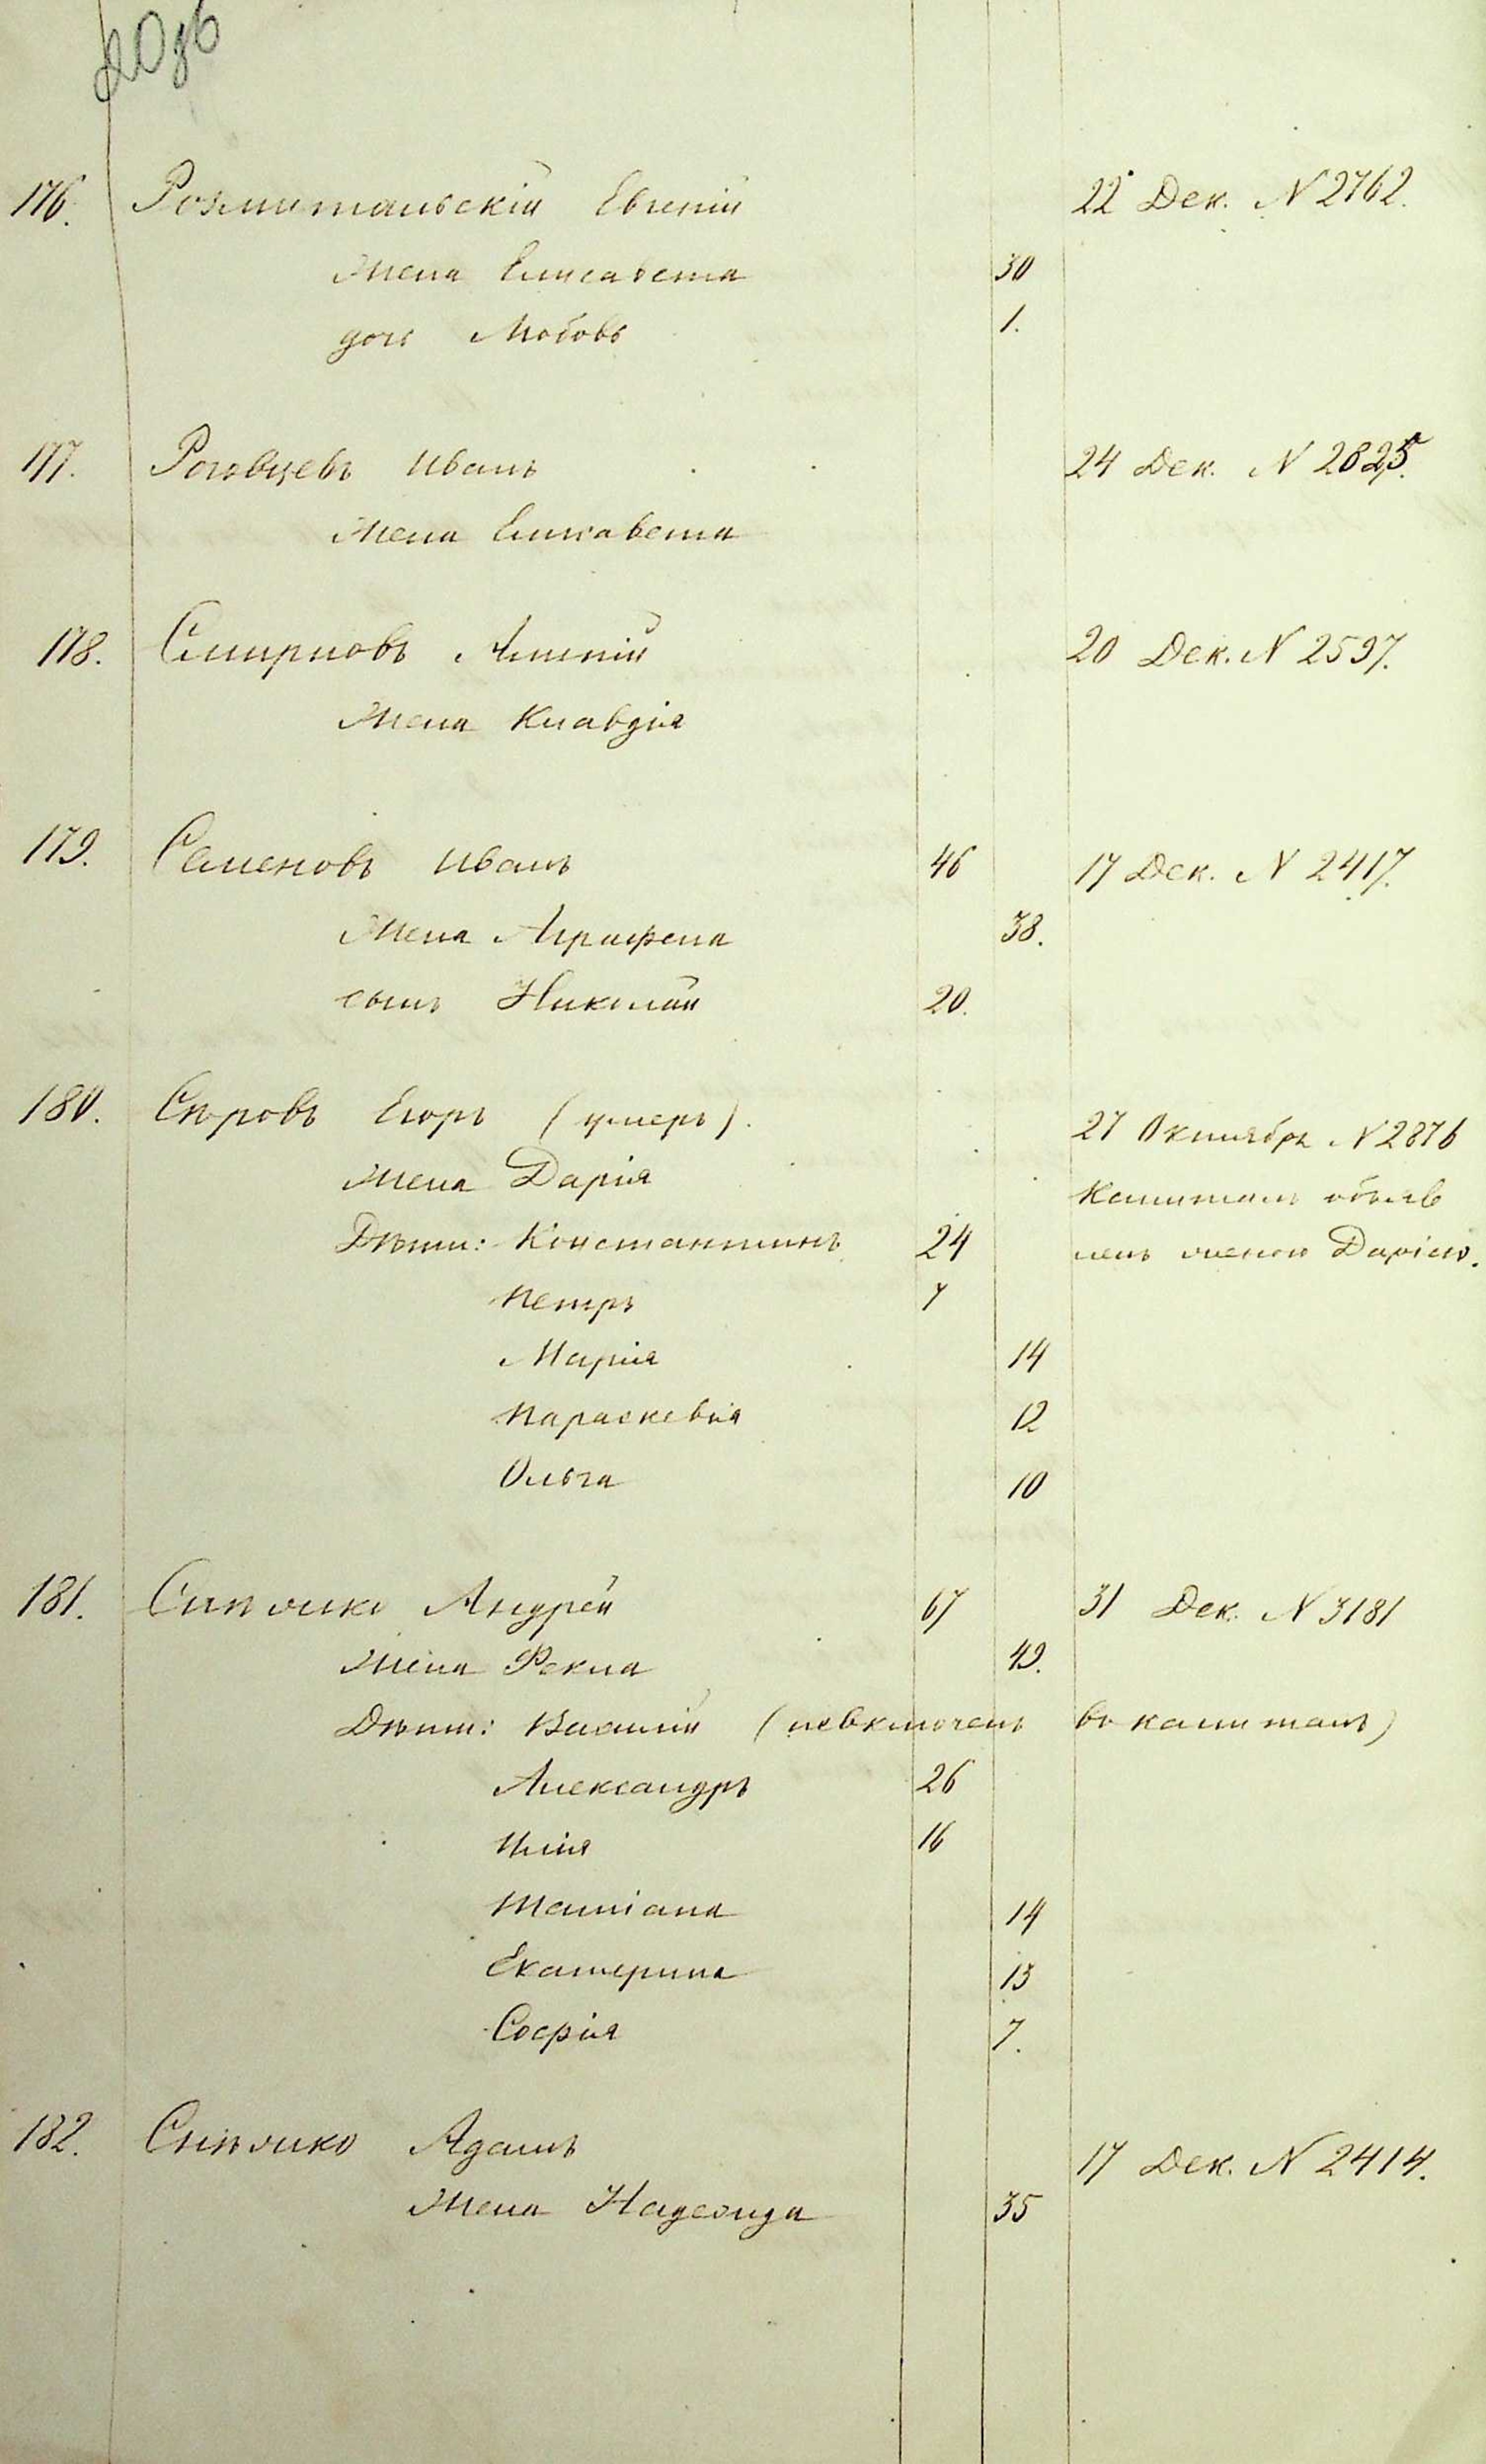 176. Розмитальскій Евгеній 22 Дек. N 2762.
Жена Елисавета 30
дочь Любовь 1.
177. Роговцевъ Иванъ 24 Дек. N 2825.
Жена Елисавета
178. Смирновъ 20 Дек. N 2597.
Жена Клавдія
179. Семеновъ Иванъ 46 17 Дек. N 2417.
Жена Агрифена 38.
сынъ Николай 20.
180. Серовъ Егоръ (умеръ). 27 Октября N 2876
Жена Дарія Капиталъ объяв
Дѣти: Константинъ 24 ленъ женою Даріею.
Петръ 7
Марія 14
Параскевія 12
Ольга 10
181. Андрей 67 31 Дек. N 3181
Жена Фекла 49.
Дѣти: Василій (невключенъ въ капиталъ)
Александръ 26
Илія 16
Татіана 14
Екатерина 13
Софія 7.
182. Адамъ 17 Дек. N 2414.
Жена Надежда 35